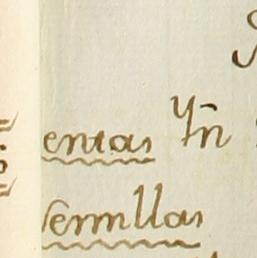 entas Yn
Semillas